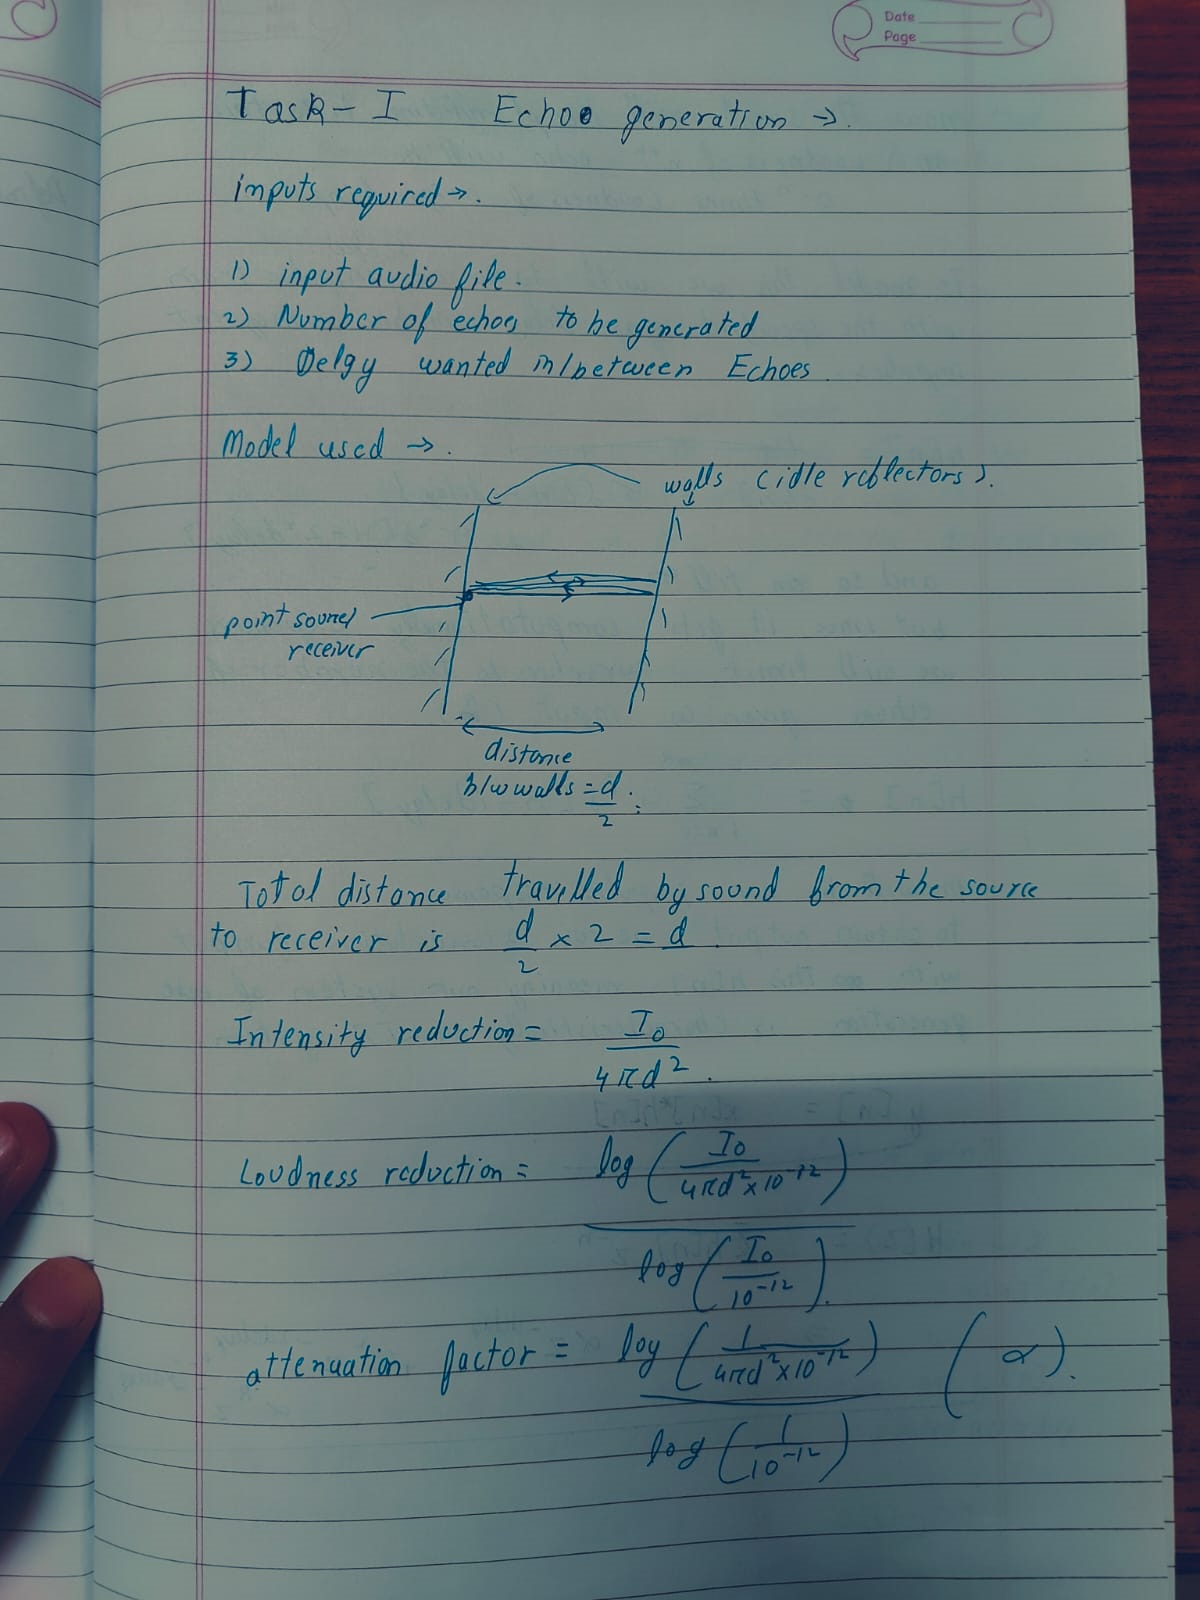 Date
Page
Task - I Echoo generation →.
inputs required →.
1) input audio file.
2) Number of echoes to be generated
3) Delgy wanted in/between Echoes.
Model used →.
walls (idle reflectors).
point source/
receiver
distance
b/w walls = d/2.
Total distance travelled by sound from the source
to receiver is d/2 × 2 = d.
Intensity reduction = I₀/4πd².
Loudness reduction = log(I₀/4πd²×10⁻¹²)
log(I₀/10⁻¹²).
attenuation factor = log(1/4πd²×10⁻¹²) (α).
log(1/10⁻¹²)